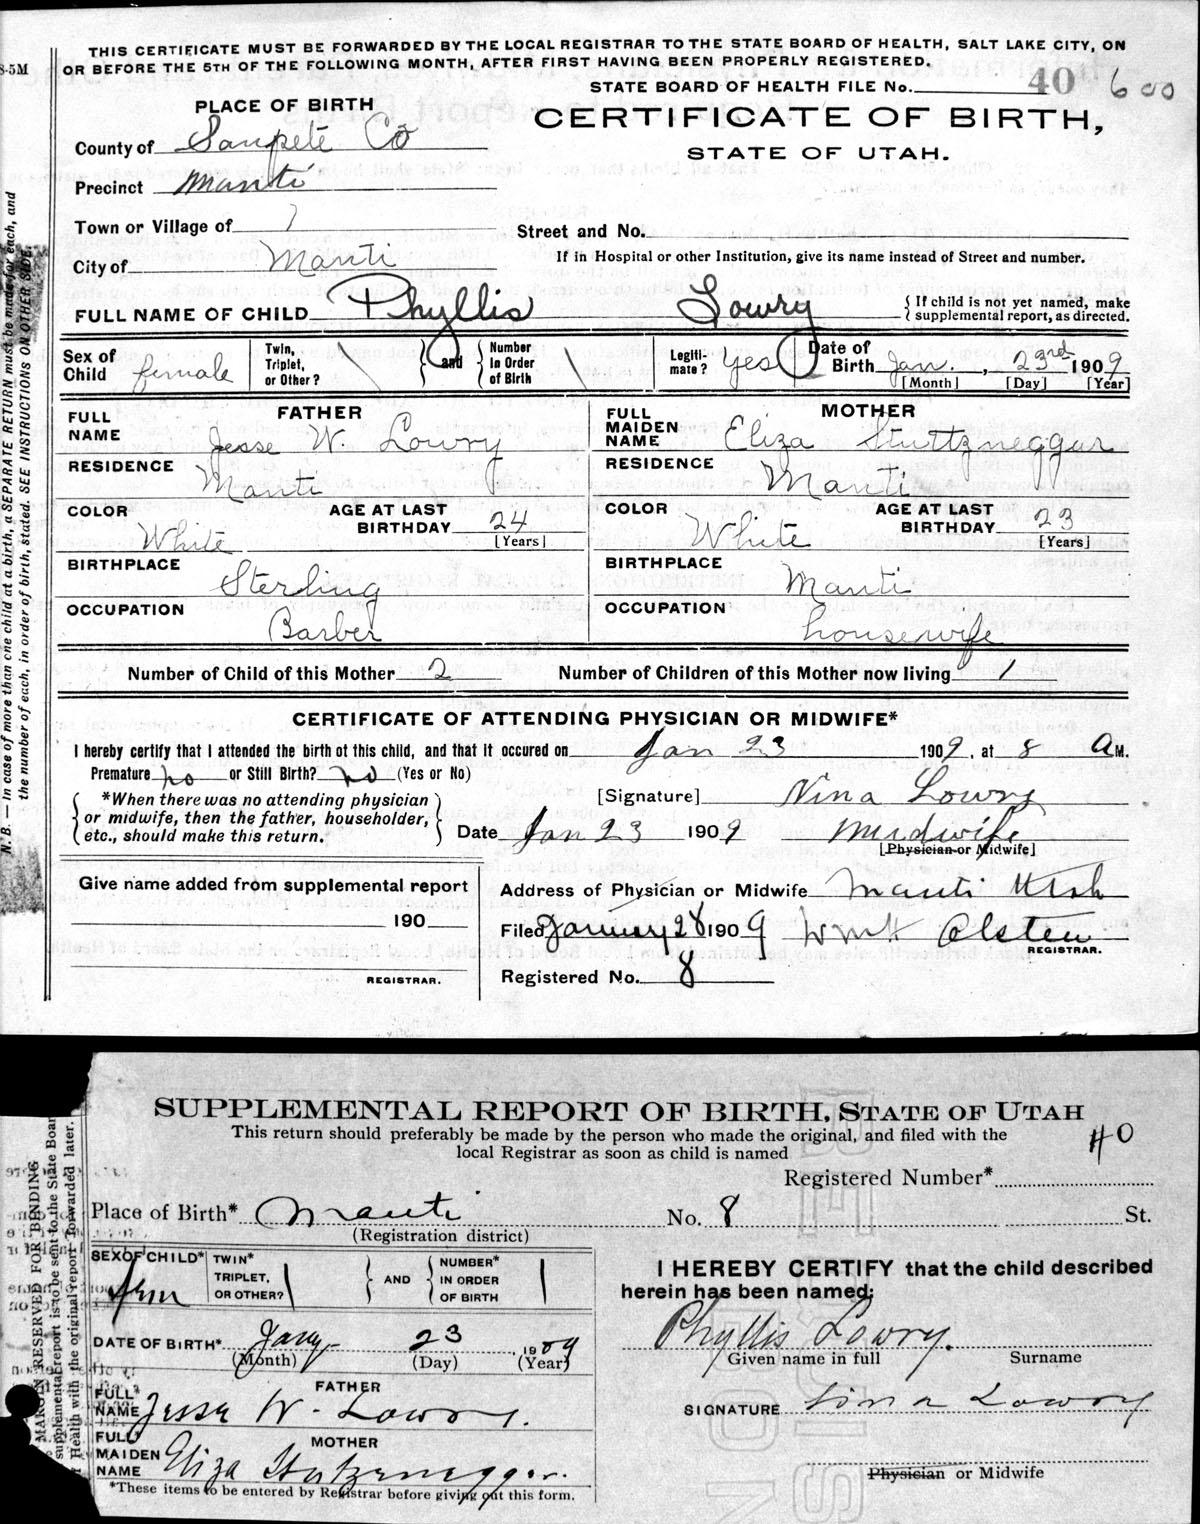 THIS CERTIFICATE MUST BE FORWARDED BY THE LOCAL REGISTRAR TO THE STATE BOARD OF HEALTH, SALT LAKE CITY, ON
OR BEFORE THE 5TH OF THE FOLLOWING MONTH, AFTER FIRST HAVING BEEN PROPERLY REGISTERED.
8-5M
STATE BOARD OF HEALTH FILE No. 40 600
PLACE OF BIRTH
CERTIFICATE OF BIRTH,
STATE OF UTAH.
County of Sanpete Co
Precinct Manti
Town or Village of
Street and No.
City of Manti
If in Hospital or other Institution, give its name instead of Street and number.
FULL NAME OF CHILD Phyllis Lowry { If child is not yet named, make supplemental report, as directed.
Sex of Child female Twin, Triplet, or Other? \ } and { Number in Order of Birth \ Legiti-mate? Yes Date of Birth Jan. , 23rd 1909
[Month] [Day] [Year]
FATHER
FULL NAME Jesse W. Lowry
RESIDENCE Manti
COLOR White AGE AT LAST BIRTHDAY 24 [Years]
BIRTHPLACE Sterling
OCCUPATION Barber
MOTHER
FULL MAIDEN NAME Eliza Stuttzneggar
RESIDENCE Manti
COLOR White AGE AT LAST BIRTHDAY 23 [Years]
BIRTHPLACE Manti
OCCUPATION housewife
Number of Child of this Mother 2 Number of Children of this Mother now living 1
CERTIFICATE OF ATTENDING PHYSICIAN OR MIDWIFE*
I hereby certify that I attended the birth of this child, and that it occured on Jan 23 1909, at 8 A M.
Premature no or Still Birth? no (Yes or No)
*When there was no attending physician
or midwife, then the father, householder,
etc., should make this return.
[Signature] Nina Lowry
Date Jan 23 1909 Midwife
[Physician or Midwife]
Give name added from supplemental report
190
REGISTRAR.
Address of Physician or Midwife Manti Utah
Filed January 28 1909 Wm H Olsten
REGISTRAR.
Registered No. 8
N. B. — In case of more than one child at a birth, a SEPARATE RETURN must be made for each, and
the number of each, in order of birth, stated. SEE INSTRUCTIONS ON OTHER SIDE.
SUPPLEMENTAL REPORT OF BIRTH, STATE OF UTAH
This return should preferably be made by the person who made the original, and filed with the
local Registrar as soon as child is named
#0
Registered Number*
Place of Birth* Manti No. 8 St.
(Registration district)
SEX OF CHILD* Fem TWIN* TRIPLET, OR OTHER? | } AND { NUMBER* IN ORDER OF BIRTH |
DATE OF BIRTH* Jany 23 , 1909
(Month) (Day) (Year)
FATHER
FULL NAME Jesse W. Lowry.
MOTHER
FULL MAIDEN NAME Eliza Stutzenegger.
*These items to be entered by Registrar before giving out this form.
I HEREBY CERTIFY that the child described
herein has been named:
Phyllis Lowry.
Given name in full Surname
SIGNATURE Nina Lowry
Physician or Midwife
MARGIN RESERVED FOR BINDING